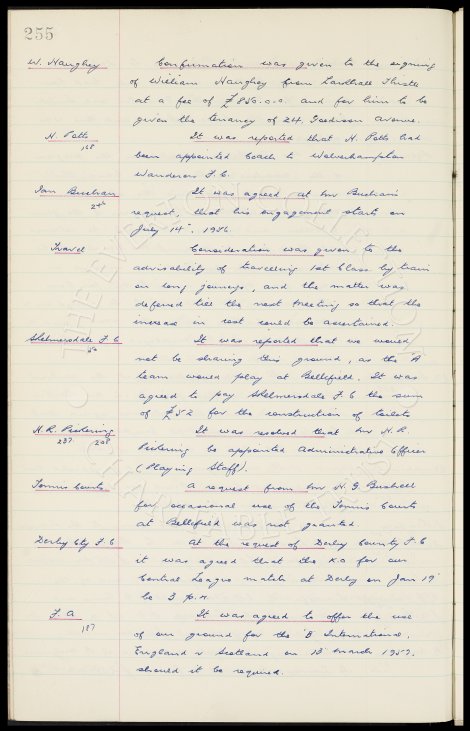 255
W. Haughey Confirmation was given to the signing
of William Haughey from Larkhall Thistle
at a fee of £850.0.0 and for him to be
given the tenancy of 24 Goodison Avenue.
H. Potts It was reported that H. Potts had
168 been appointed Coach to Wolverhampton
Wanderers F.C.
Ian Buchan It was agreed at Mr Buchan's
request, that his engagement starts on
July 14th. 1956.
Travel Consideration was given to the
advisability of travelling 1st Class by train
on long journeys, and the matter was
deferred till the next meeting so that the
increase in cost could be ascertained.
Skelmersdale F.C It was reported that we would
not be sharing this ground, as the A
team would play at Bellefield. It was
agreed to pay Skelmersdale F.C the sum
of £52 for the construction of toilets
H.R. Pickering It was resolved that Mr H.R.
237. 208 Pickering be appointed Administrative Officer
(Playing Staff).
Tennis Courts A request from Mr H.G. Bushell
for occasional use of the Tennis Courts
at Bellefield was not granted
Derby Cty F.C At the request of Derby County F.C
it was agreed that the K.O for our
Central League match at Derby on Jan 19th
be 3 p.m
F.A It was agreed to offer the use
187 of our ground for the 'B' International,
England v Scotland on March 1957.
should it be required.
THE EVERTON COLLECTION
CHARITABLE TRUST